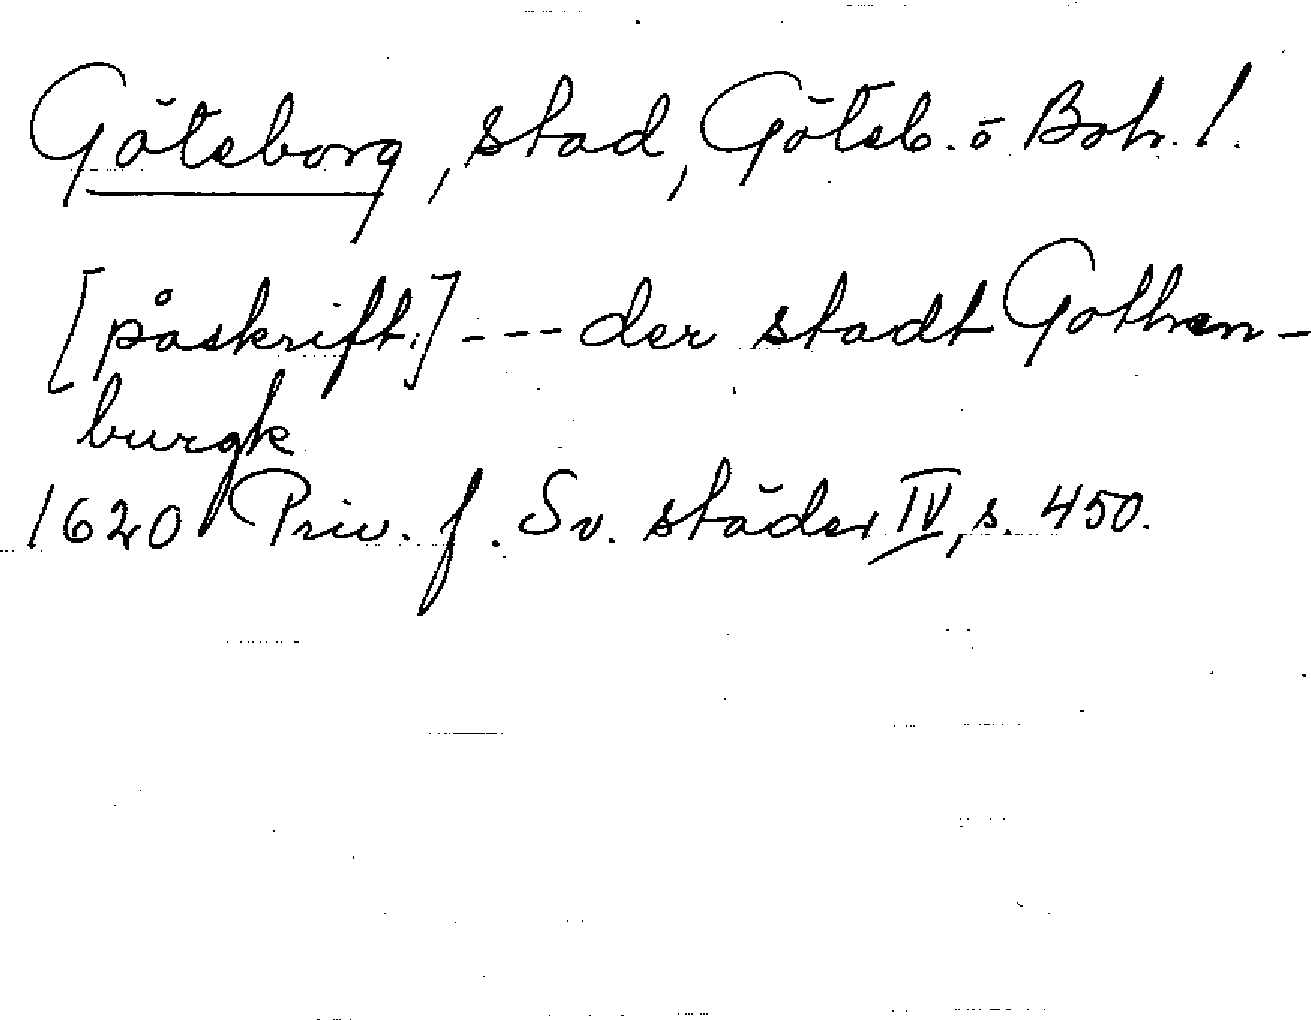 Göteborg, stad, Götsb. o Boh. l.
[påskrift:] --- der stadt Gothen-
burgk
1620 Priv. f. Sv. städer IV, s. 450.